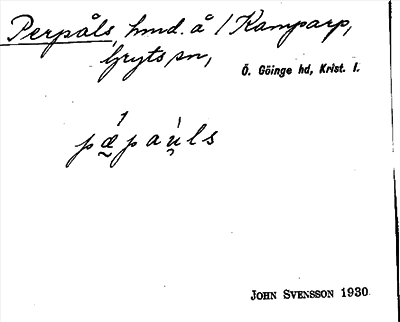 Perpåls, hmd. å 1 Kamparp,
Gryts sn,
Ö. Göinge hd, Krist. l.
pǽpaùls
JOHN SVENSSON 1930